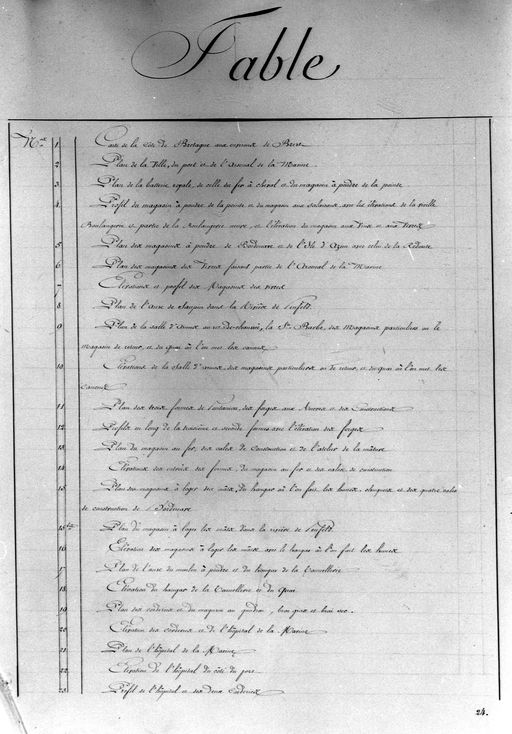 Table
Nos
1 Carte de la Côte de Bretagne aux environs de Brest
2 Plan de la Ville, du port et de l'Arsenal de la Marine
3 Plan de la batterie royale, de celle du fer à cheval et du magasin à poudre de la pointe
4 Profil du magasin à poudre de la pointe et du magasin aux salaisons avec les élévations de la vieille
Boulangerie et partie de la Boulangerie neuve, et l'élévation du magasin aux Vins et aux Vivres
5 Plan des magasins à poudre de et de l'Isle d' avec celui de la
6 Plan des magasins des Vivres faisant partie de l'Arsenal de la Marine
7 Elévations et profil des Magasins des vivres
8 Plan de l'Anse de dans la Rivière de Penfeld
9 Plan de la salle d'Armes au rez-de-chaussée, la Ste Barbe, des Magasins particuliers ou le
Magasin de retour, et du quai où l'on met les canons
10 Elévations de la Salle d'armes, des magasins particuliers ou de retour, et du quai où l'on met les
canons
11 Plan des trois formes de Pontaniou, des forges aux Ancres et des Constructions
12 Profils en long de la troisième et seconde formes avec l'élévation des forges
13 Plan du magasin au fer, des cales de Construction et de l'atelier de la mâture
14 Elévations des entrées des formes, du magasin au fer et des cales de construction
15 Plan des magasins à loger les mâts, du hangar où l'on fait les hunes, et des quatre cales
de construction de
15 bis Plan du magasin à loger les mâts dans la rivière de Penfeld
16 Elévation des magasins à loger les mâts avec le hangar où l'on fait les hunes
17 Plan de l'anse du moulin à poudre et du hangar de la Tonnellerie
18 Elévation du hangar de la Tonnellerie et du Quai
19 Plan des corderies et du magasin au goudron, bray gras et brai sec.
20 Elévation des Corderies et de l'hôpital de la Marine
21 Plan de l'hôpital de la Marine
22 Elévation de l'hôpital du côté du port
23 Profil de l'hôpital et des deux Corderies
24.